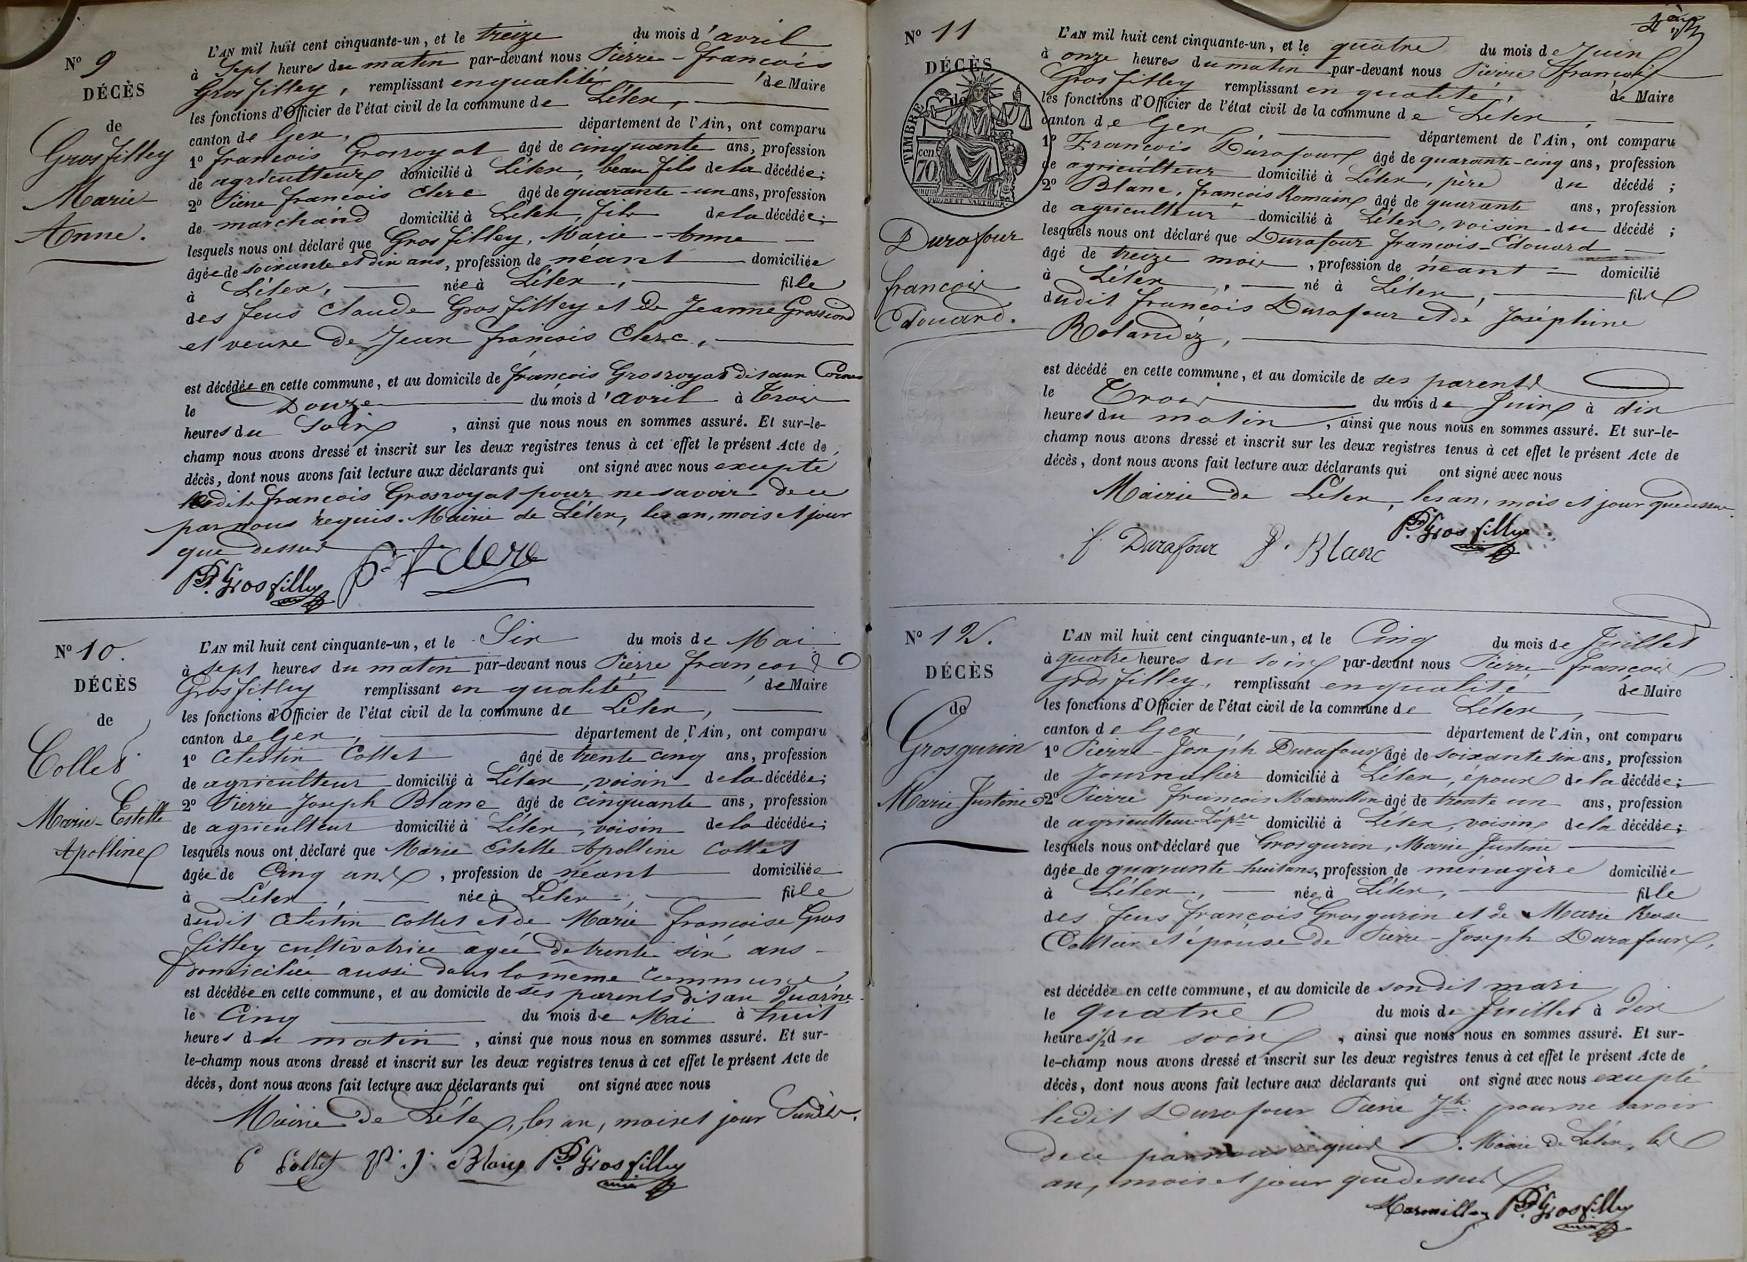 N° 9
DÉCÈS
de
Grosfilley
Marie
Anne.
L'AN mil huit cent cinquante-un, et le treize du mois d'avril
à sept heures du matin par-devant nous Pierre-françois
Grosfilley, remplissant en qualité de Maire
les fonctions d'Officier de l'état civil de la commune de Lélex,
canton de Gex, département de l'Ain, ont comparu
1° françois Grosroyat âgé de cinquante ans, profession
de agriculteur domicilié à Lélex, beau fils de la décédée;
2° Pierre françois Clerc âgé de quarante-un ans, profession
de marchand domicilié à Lélex, fils de la décédée;
lesquels nous ont déclaré que Grosfilley, Marie-Anne
âgée de soixante et dix ans, profession de néant domiciliée
à Lélex, née à Lélex, fille
des feus Claude Grosfilley et de Jeanne Grossiord
et veuve de Jean françois Clerc,
est décédée en cette commune, et au domicile de françois Grosroyat dit aux
le Douze du mois d'avril à trois
heures du soir, ainsi que nous nous en sommes assuré. Et sur-le-
champ nous avons dressé et inscrit sur les deux registres tenus à cet effet le présent Acte de
décès, dont nous avons fait lecture aux déclarants qui ont signé avec nous excepté
ledit françois Grosroyat pour ne savoir de ce
par nous requis. Mairie de Lélex, les an, mois et jour
que dessus
Pre Grosfilley P. F. Clerc
N° 10.
DÉCÈS
de
Collet
Marie-Estelle
Apolline
L'AN mil huit cent cinquante-un, et le Six du mois de Mai
à sept heures du matin par-devant nous Pierre françois
Grosfilley remplissant en qualité de Maire
les fonctions d'Officier de l'état civil de la commune de Lélex,
canton de Gex, département de l'Ain, ont comparu
1° Celestin Collet âgé de trente cinq ans, profession
de agriculteur domicilié à Lélex, voisin de la décédée;
2° Pierre Joseph Blanc âgé de cinquante ans, profession
de agriculteur domicilié à Lélex, voisin de la décédée;
lesquels nous ont déclaré que Marie Estelle Apolline Collet
âgée de Cinq ans, profession de néant domiciliée
à Lélex, née à Lélex, fille
dudit Celestin Collet et de Marie françoise Gros
filley cultivatrice âgée de trente six ans
domiciliée aussi dans la même Commune
est décédée en cette commune, et au domicile de ses parents dit au
le Cinq du mois de Mai à huit
heures du matin, ainsi que nous nous en sommes assuré. Et sur-
le-champ nous avons dressé et inscrit sur les deux registres tenus à cet effet le présent Acte de
décès, dont nous avons fait lecture aux déclarants qui ont signé avec nous
Mairie de Lélex, les an, mois et jour susdits.
C Collet P. J. Blanc Pre Grosfilley
N° 11
DÉCÈS
de
TIMBRE
70 cen
Durafour
françois
Edouard.
L'AN mil huit cent cinquante-un, et le quatre du mois de Juin
à onze heures du matin par-devant nous Pierre françois
Grosfilley remplissant en qualité, de Maire
les fonctions d'Officier de l'état civil de la commune de Lélex,
canton de Gex, département de l'Ain, ont comparu
1° François Durafour âgé de quarante-cinq ans, profession
de agriculteur domicilié à Lélex, père du décédé;
2° Blanc, françois Romain âgé de quarante ans, profession
de agriculteur domicilié à Lélex, voisin du décédé;
lesquels nous ont déclaré que Durafour françois-Edouard
âgé de treize mois, profession de néant domicilié
à Lélex, né à Lélex, fils
dudit françois Durafour et de Joséphine
Rolandez,
est décédé en cette commune, et au domicile de ses parents
le Trois du mois de Juin à dix
heures du matin, ainsi que nous nous en sommes assuré. Et sur-le-
champ nous avons dressé et inscrit sur les deux registres tenus à cet effet le présent Acte de
décès, dont nous avons fait lecture aux déclarants qui ont signé avec nous
Mairie de Lélex, les an, mois et jour que dessus.
Pre Grosfilley
f Durafour f. Blanc
N° 12.
DÉCÈS
de
Grosgurin
Marie Justine
L'AN mil huit cent cinquante-un, et le Cinq du mois de Juillet
à quatre heures du soir par-devant nous Pierre françois
Grosfilley, remplissant en qualité de Maire
les fonctions d'Officier de l'état civil de la commune de Lélex,
canton de Gex, département de l'Ain, ont comparu
1° Pierre-Joseph Durafour âgé de soixante six ans, profession
de Journalier domicilié à Lélex, époux de la décédée;
2° Pierre françois Marmillon âgé de trente un ans, profession
de agriculteur domicilié à Lélex, voisin de la décédée;
lesquels nous ont déclaré que Grosgurin, Marie Justine
âgée de quarante huit ans, profession de ménagère domiciliée
à Lélex, née à Lélex, fille
des feus françois Grosgurin et de Marie Rose
et épouse de Pierre-Joseph Durafour,
est décédée en cette commune, et au domicile de sondit mari
le quatre du mois de Juillet à dix
heures du soir, ainsi que nous nous en sommes assuré. Et sur-
le-champ nous avons dressé et inscrit sur les deux registres tenus à cet effet le présent Acte de
décès, dont nous avons fait lecture aux déclarants qui ont signé avec nous excepté
ledit Durafour Pierre Jh. pour ne savoir
de ce par nous requis. Mairie de Lélex, les
an, mois et jour que dessus
Marmillon Pre Grosfilley